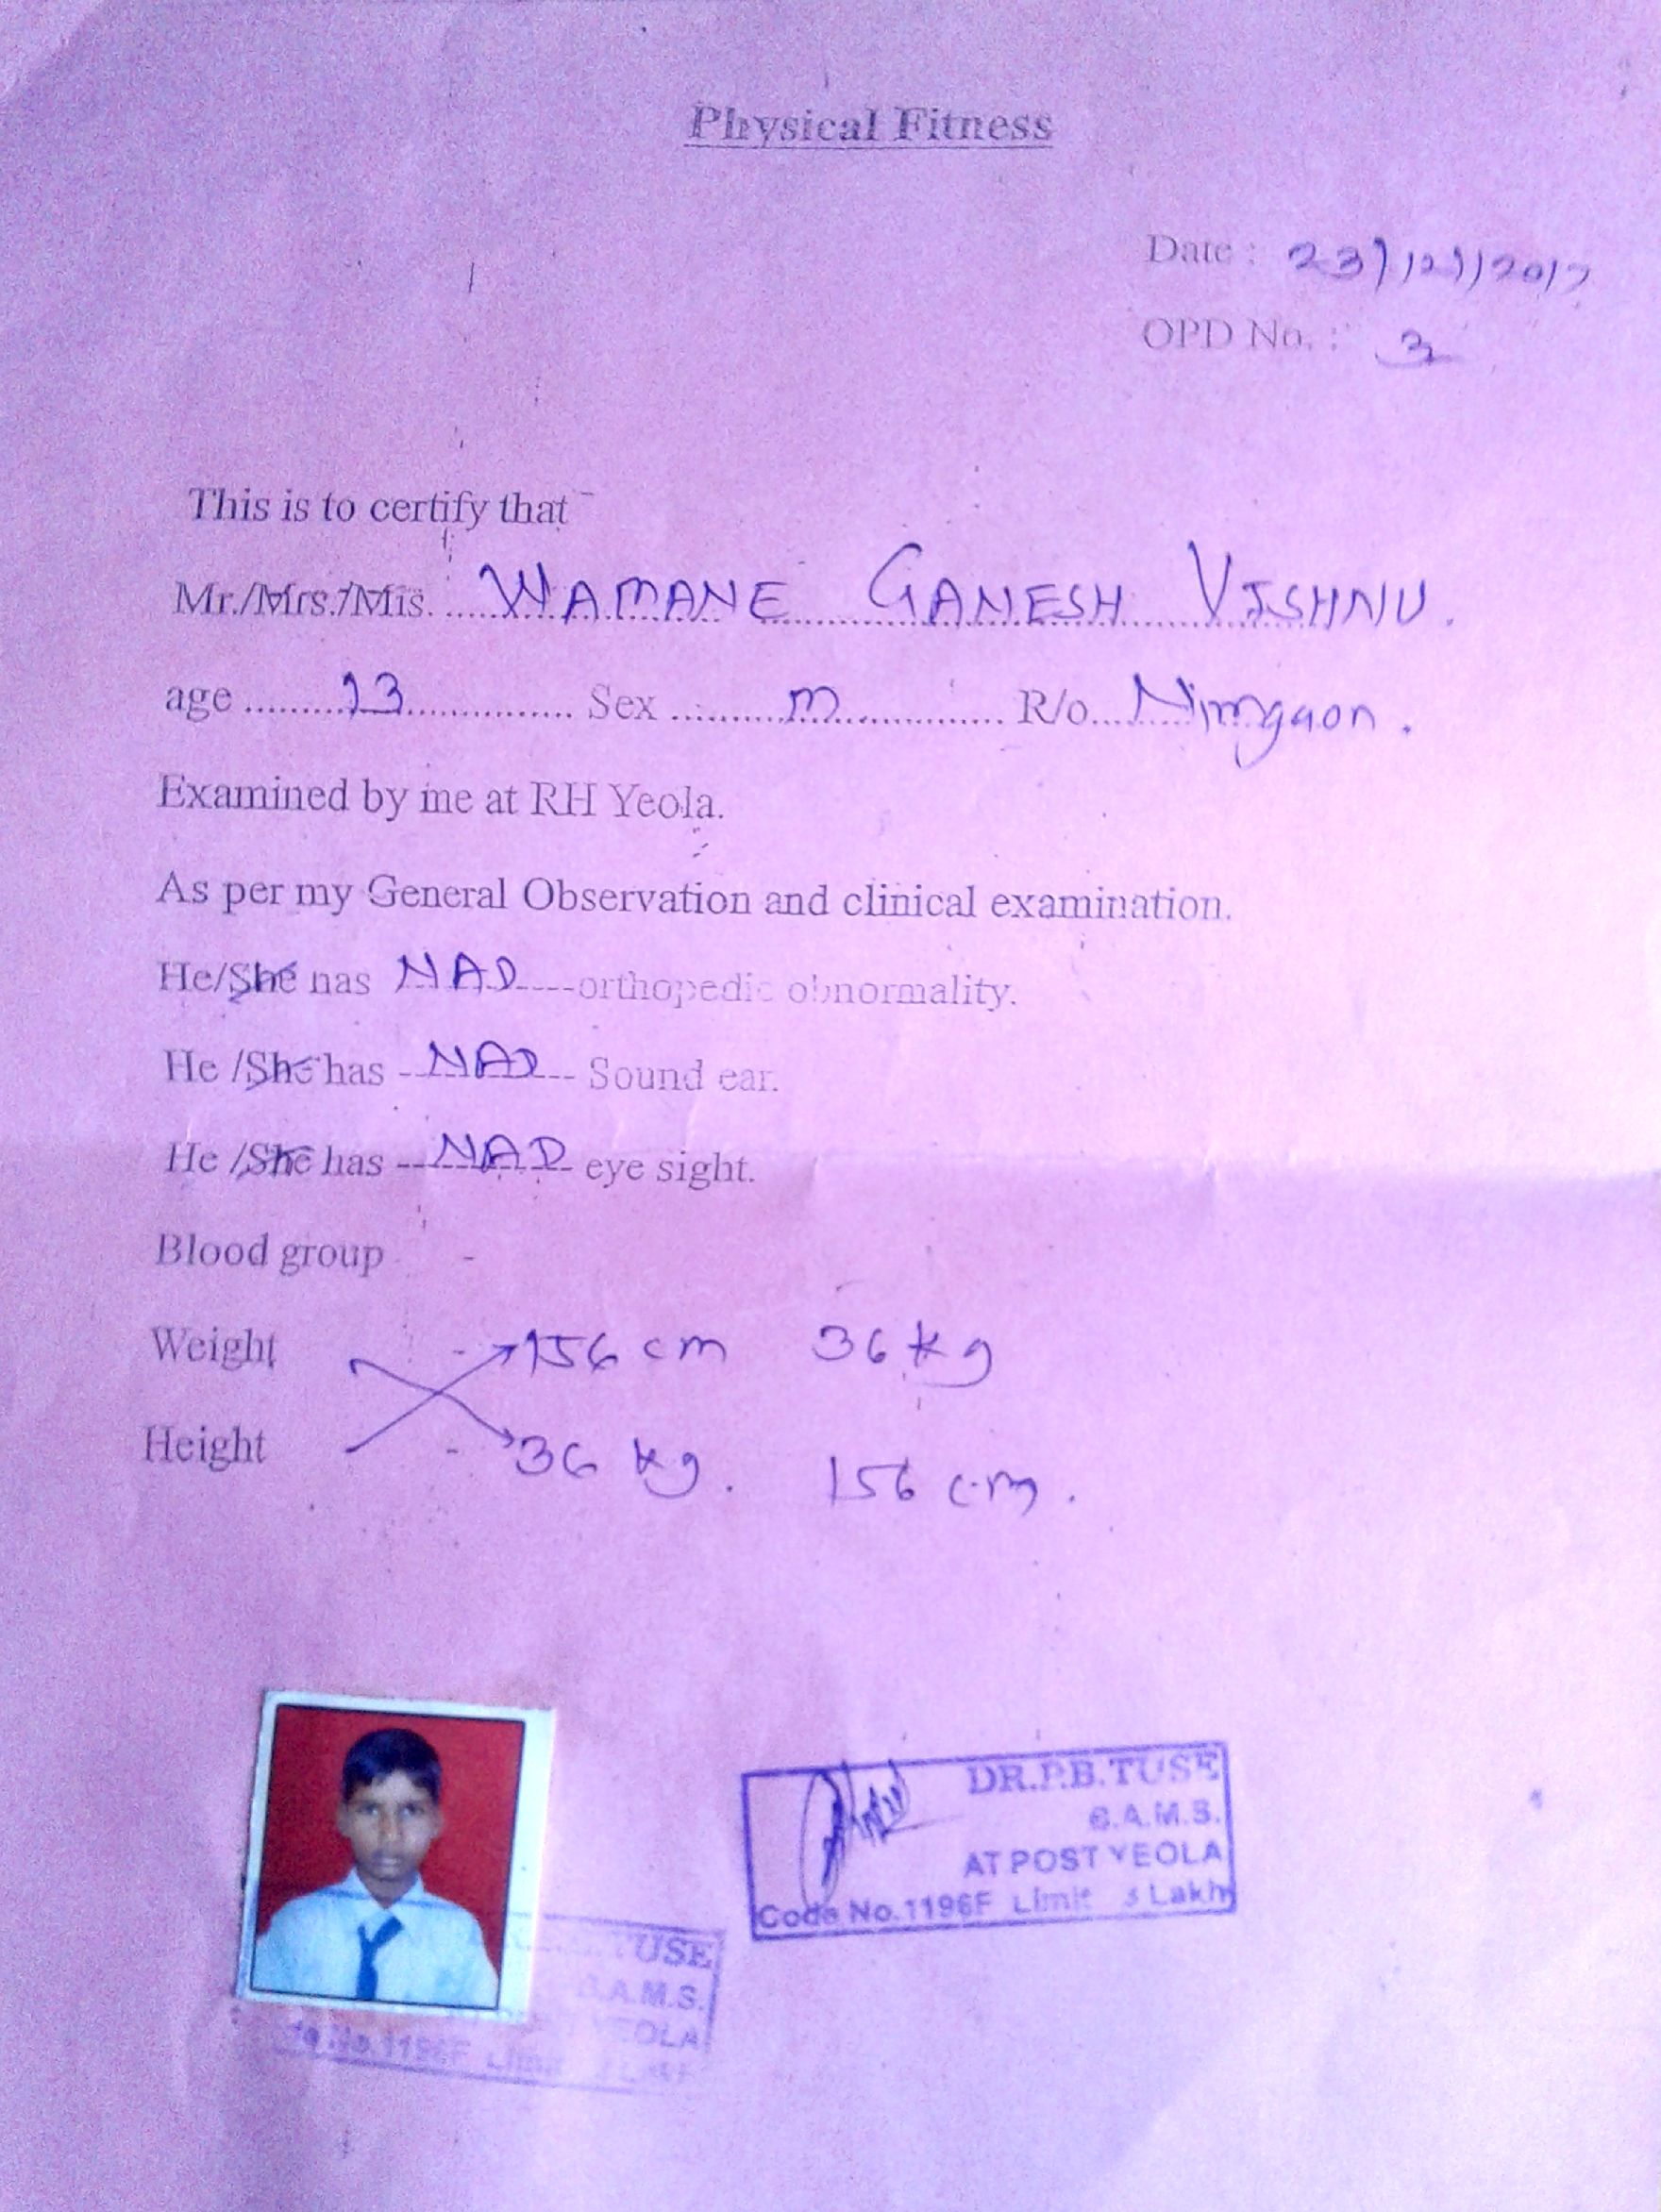 Physical Fitness
Date : 23/12/2017
OPD No. : 3
This is to certify that
Mr./Mrs./Mis. WAMANE GANESH VISHNU.
age 13 Sex m R/o. Nimgaon.
Examined by me at RH Yeola.
As per my General Observation and clinical examination.
He/She has NAD orthopedic obnormality.
He /She has NAD Sound ear.
He /She has NAD eye sight.
Blood group -
Weight - 156 cm 36 kg
Height - 36 kg. 156 cm.
DR.P.B.TUSE
B.A.M.S.
AT POST YEOLA
Code No.1196F Limit 3 Lakh
TUSE
B.A.M.S.
YEOLA
No.1196F Limit